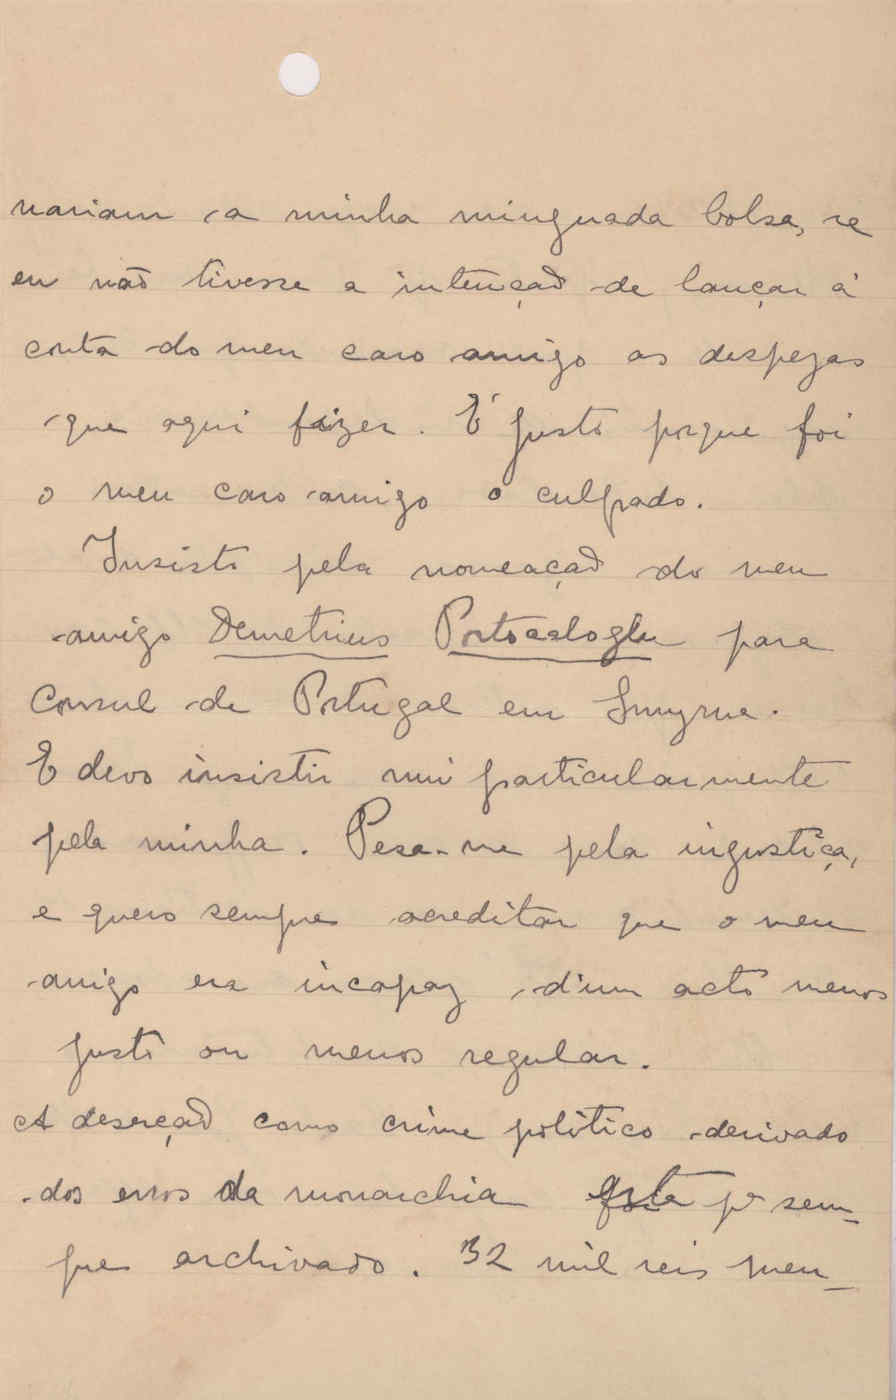 nariam a minha minguada bolsa, se
eu não tivesse a intenção de lançar á
conta do meu caro amigo as despezas
que aqui fizer. É justo porque foi
o meu caro amigo o culpado.
Insisto pela nomeação do meu
amigo Demetrius Portocaloglu para
Consul de Portugal em Smyrna.
E devo insistir mui particularmente
pela minha. Pesa-me pela injustiça,
e quero sempre acreditar que o meu
amigo era incapaz d'um acto menos
justo ou menos regular.
A deserção como crime politico derivado
dos erros da monarchia está pª sem-
pre archivado. 32 mil reis men-